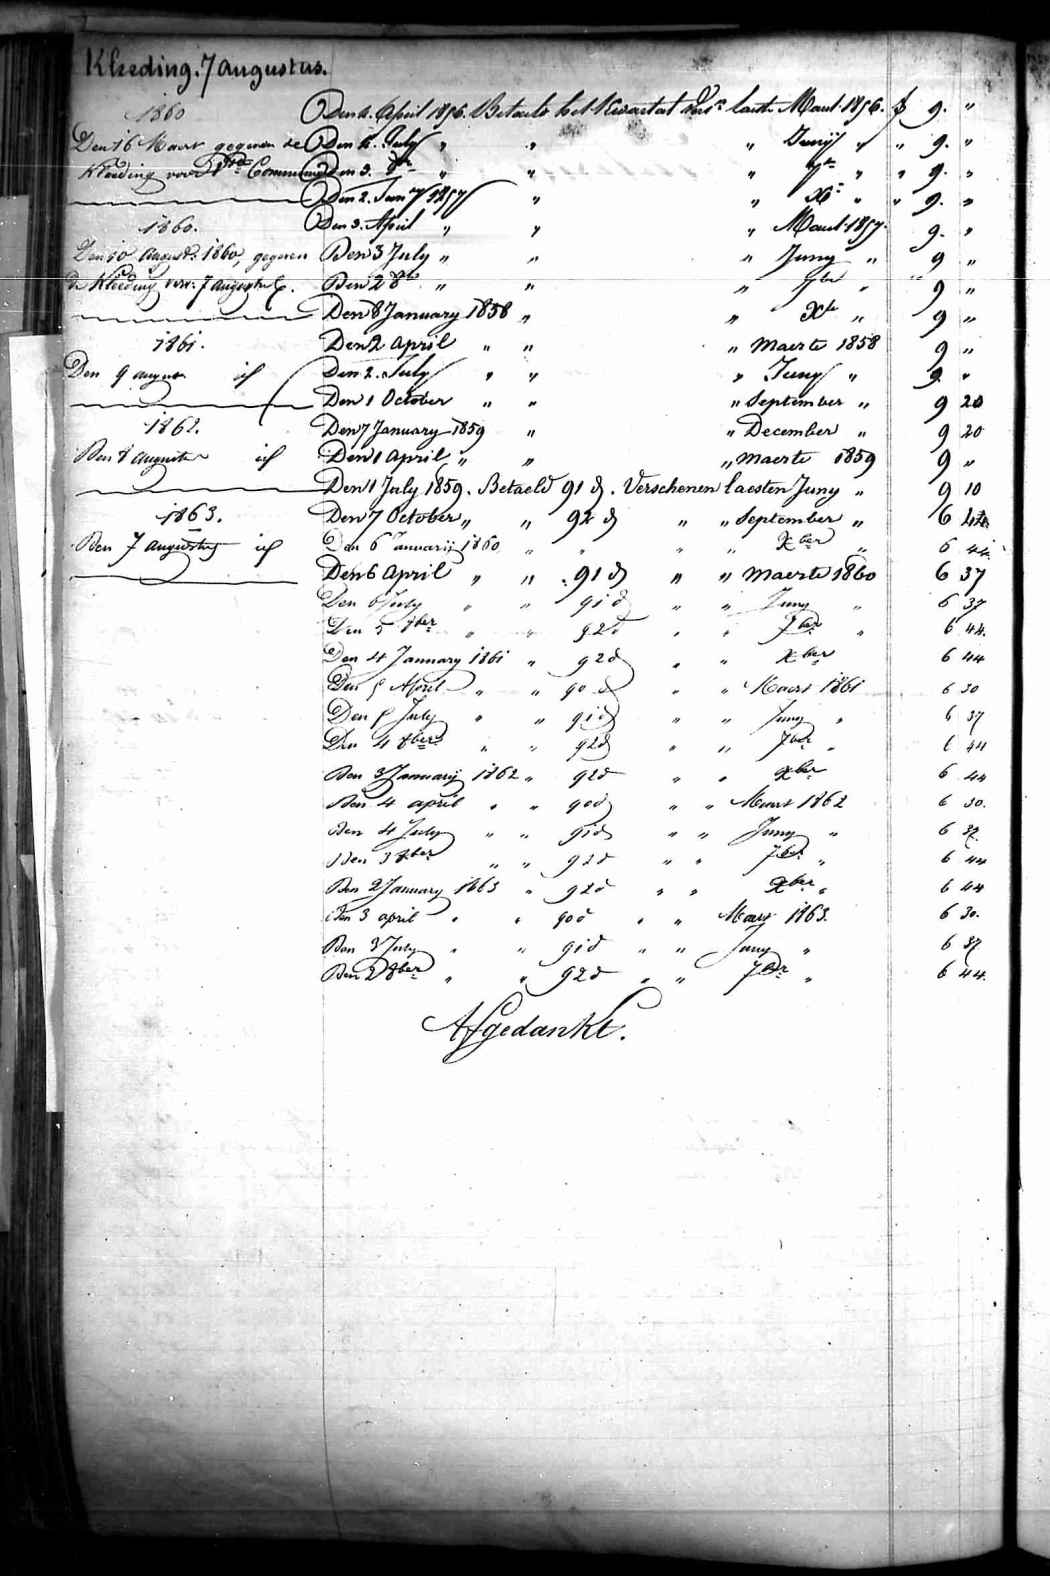 Kleeding. 7 Augustus.
1860
Den 16 Maart gegeven de
Kleeding voor 1ste Communie
1860.
Den 10 August: 1860, gegeven
de Kleeding verv: 7 Augustus
1861.
Den 9 august id
1862.
Den 8 Augustus id
1863.
Den 7 Augustus id
Den 4. April 1856. Betaeld het Kwartael vers. laetst Maart 1856. f 9. "
Den 4. July " " " Junij " " 9. "
Den 3. 8br " " " 7br " " 9. "
Den 2. Jan 1857 " " Xr " " 9. "
Den 3. April " " " Maart 1857. 9. "
Den 3 July " " " Juny " 9 "
Den 2 8br " " " 7br " " 9 "
Den 8 January 1858 " " Xbr " 9 "
Den 2 April " " " Maerte 1858 9 "
Den 2. July " " " Juny " 9. "
Den 1 October " " " September " 9 20
Den 7 January 1859 " " December " 9 20
Den 1 April " " " Maerte 1859 9 "
Den 1 July 1859. Betaeld 91 d. Verschenen laesten Juny " 9 10
Den 7 October " " 92 d " " September " 6 44
Den 6 Januarij 1860 " " " " Xber " 6 44
Den 6 April " " 91 d " " Maerte 1860 6 37
Den 6 July " " 91 d " " Juny " 6 37
Den 5 8ber " " 92 d " " 7ber " 6 44.
Den 4 January 1861 " 92 d " " Xber 6 44
Den 5 April " " 90 d " " Maert 1861 6 30
Den 5 July " " 91 d " " Juny " 6 37
Den 4 8ber " " 92 d " " 7ber " 6 44
Den 3 Januarij 1862 " 92 d " " Xber 6 44
Den 4 april " " 90 d " " Maart 1862 6 30.
Den 4 July " " 91 d " " Juny " 6 37.
Den 3 8ber " " 92 d " " 7ber " 6 44
Den 2 January 1863 " 92 d " " Xber " 6 44
Den 3 april " " 90 d " " Maart 1863. 6 30.
Den 3 July " " 91 d " " Juny " 6 37
Den 2 8ber " " 92 d " " 7ber " 6 44.
Afgedankt.